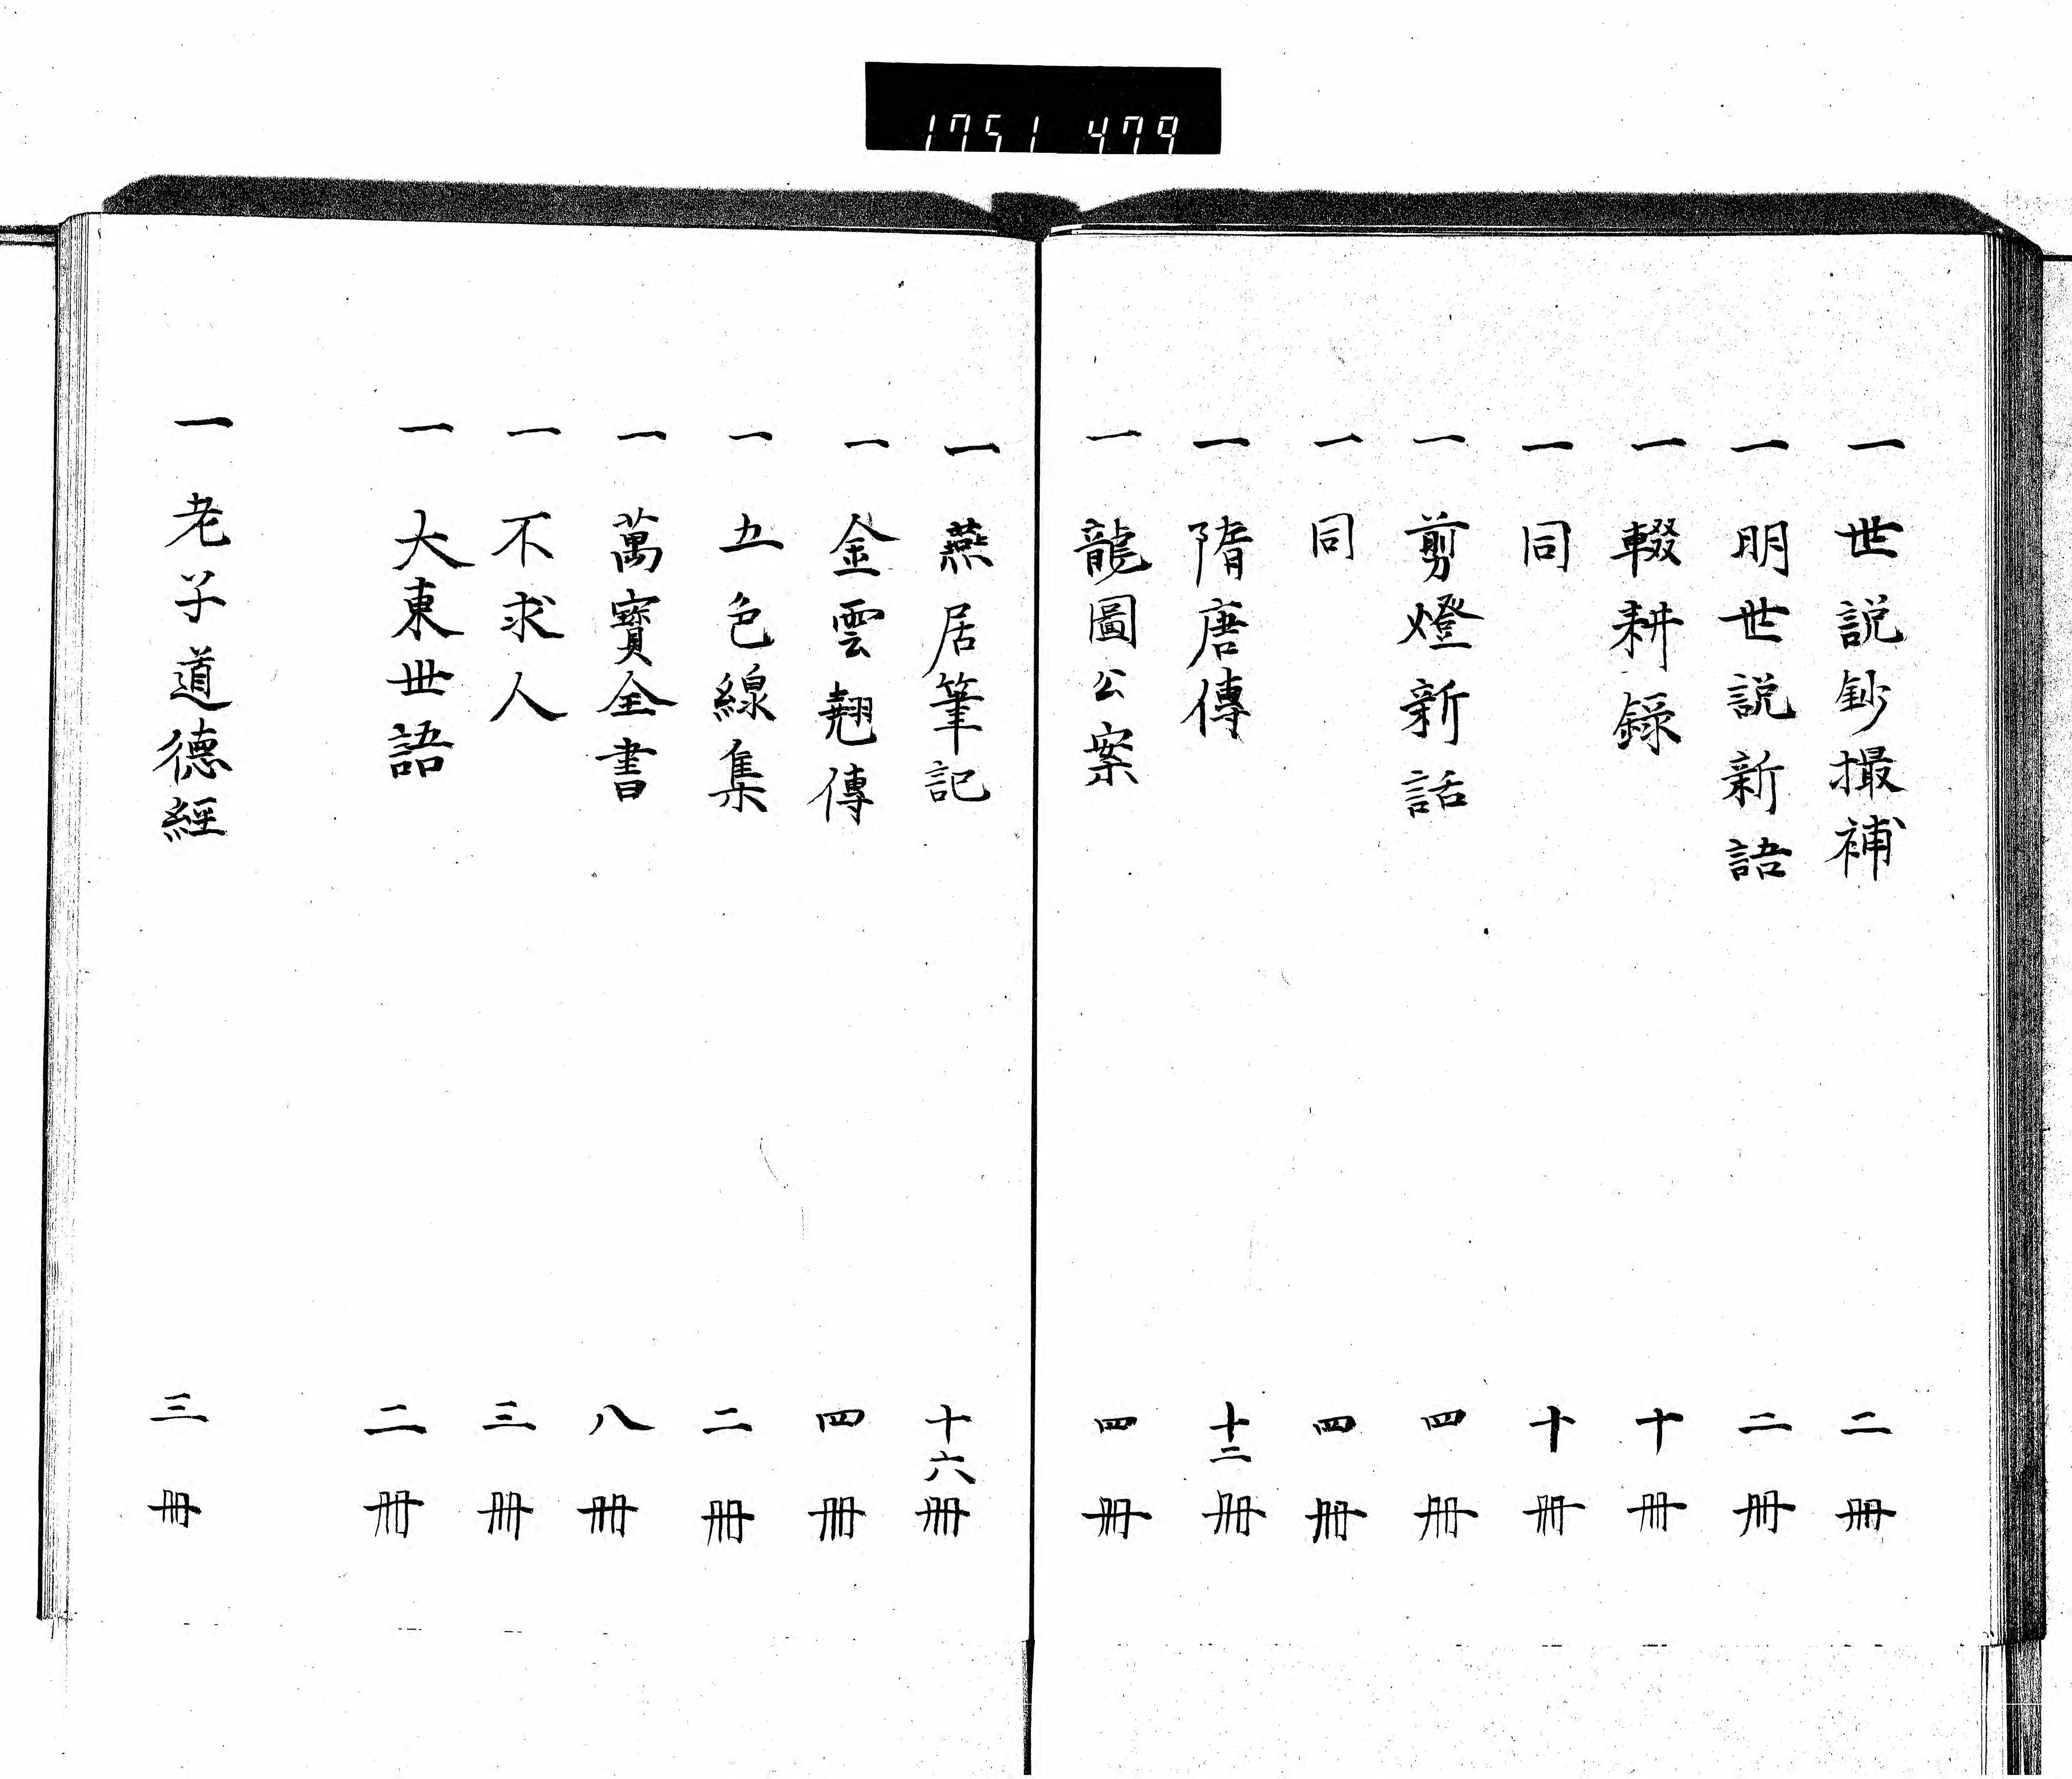 1751 479
一 世説鈔撮補 二冊
一 明世説新語 二冊
一 輟耕録 十冊
一 同 十冊
一 剪燈新話 四冊
一 同 四冊
一 隋唐傳 十二冊
一 龍圖公案 四冊
一 燕居筆記 十六冊
一 金雲翹傳 四冊
一 五色線集 二冊
一 萬寶全書 八冊
一 不求人 三冊
一 大東世語 二冊
一 老子道德經 三冊